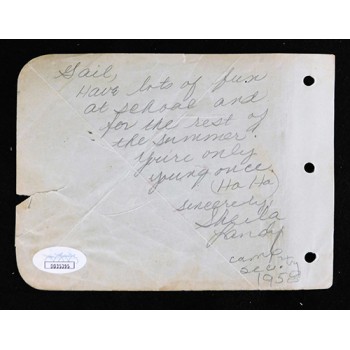 Gail,
Have lots of fun
at school and
for the rest of
the summer.
You're only
young once.
(Ha Ha)
Sincerely,
Sheila
Landy
camp
1958